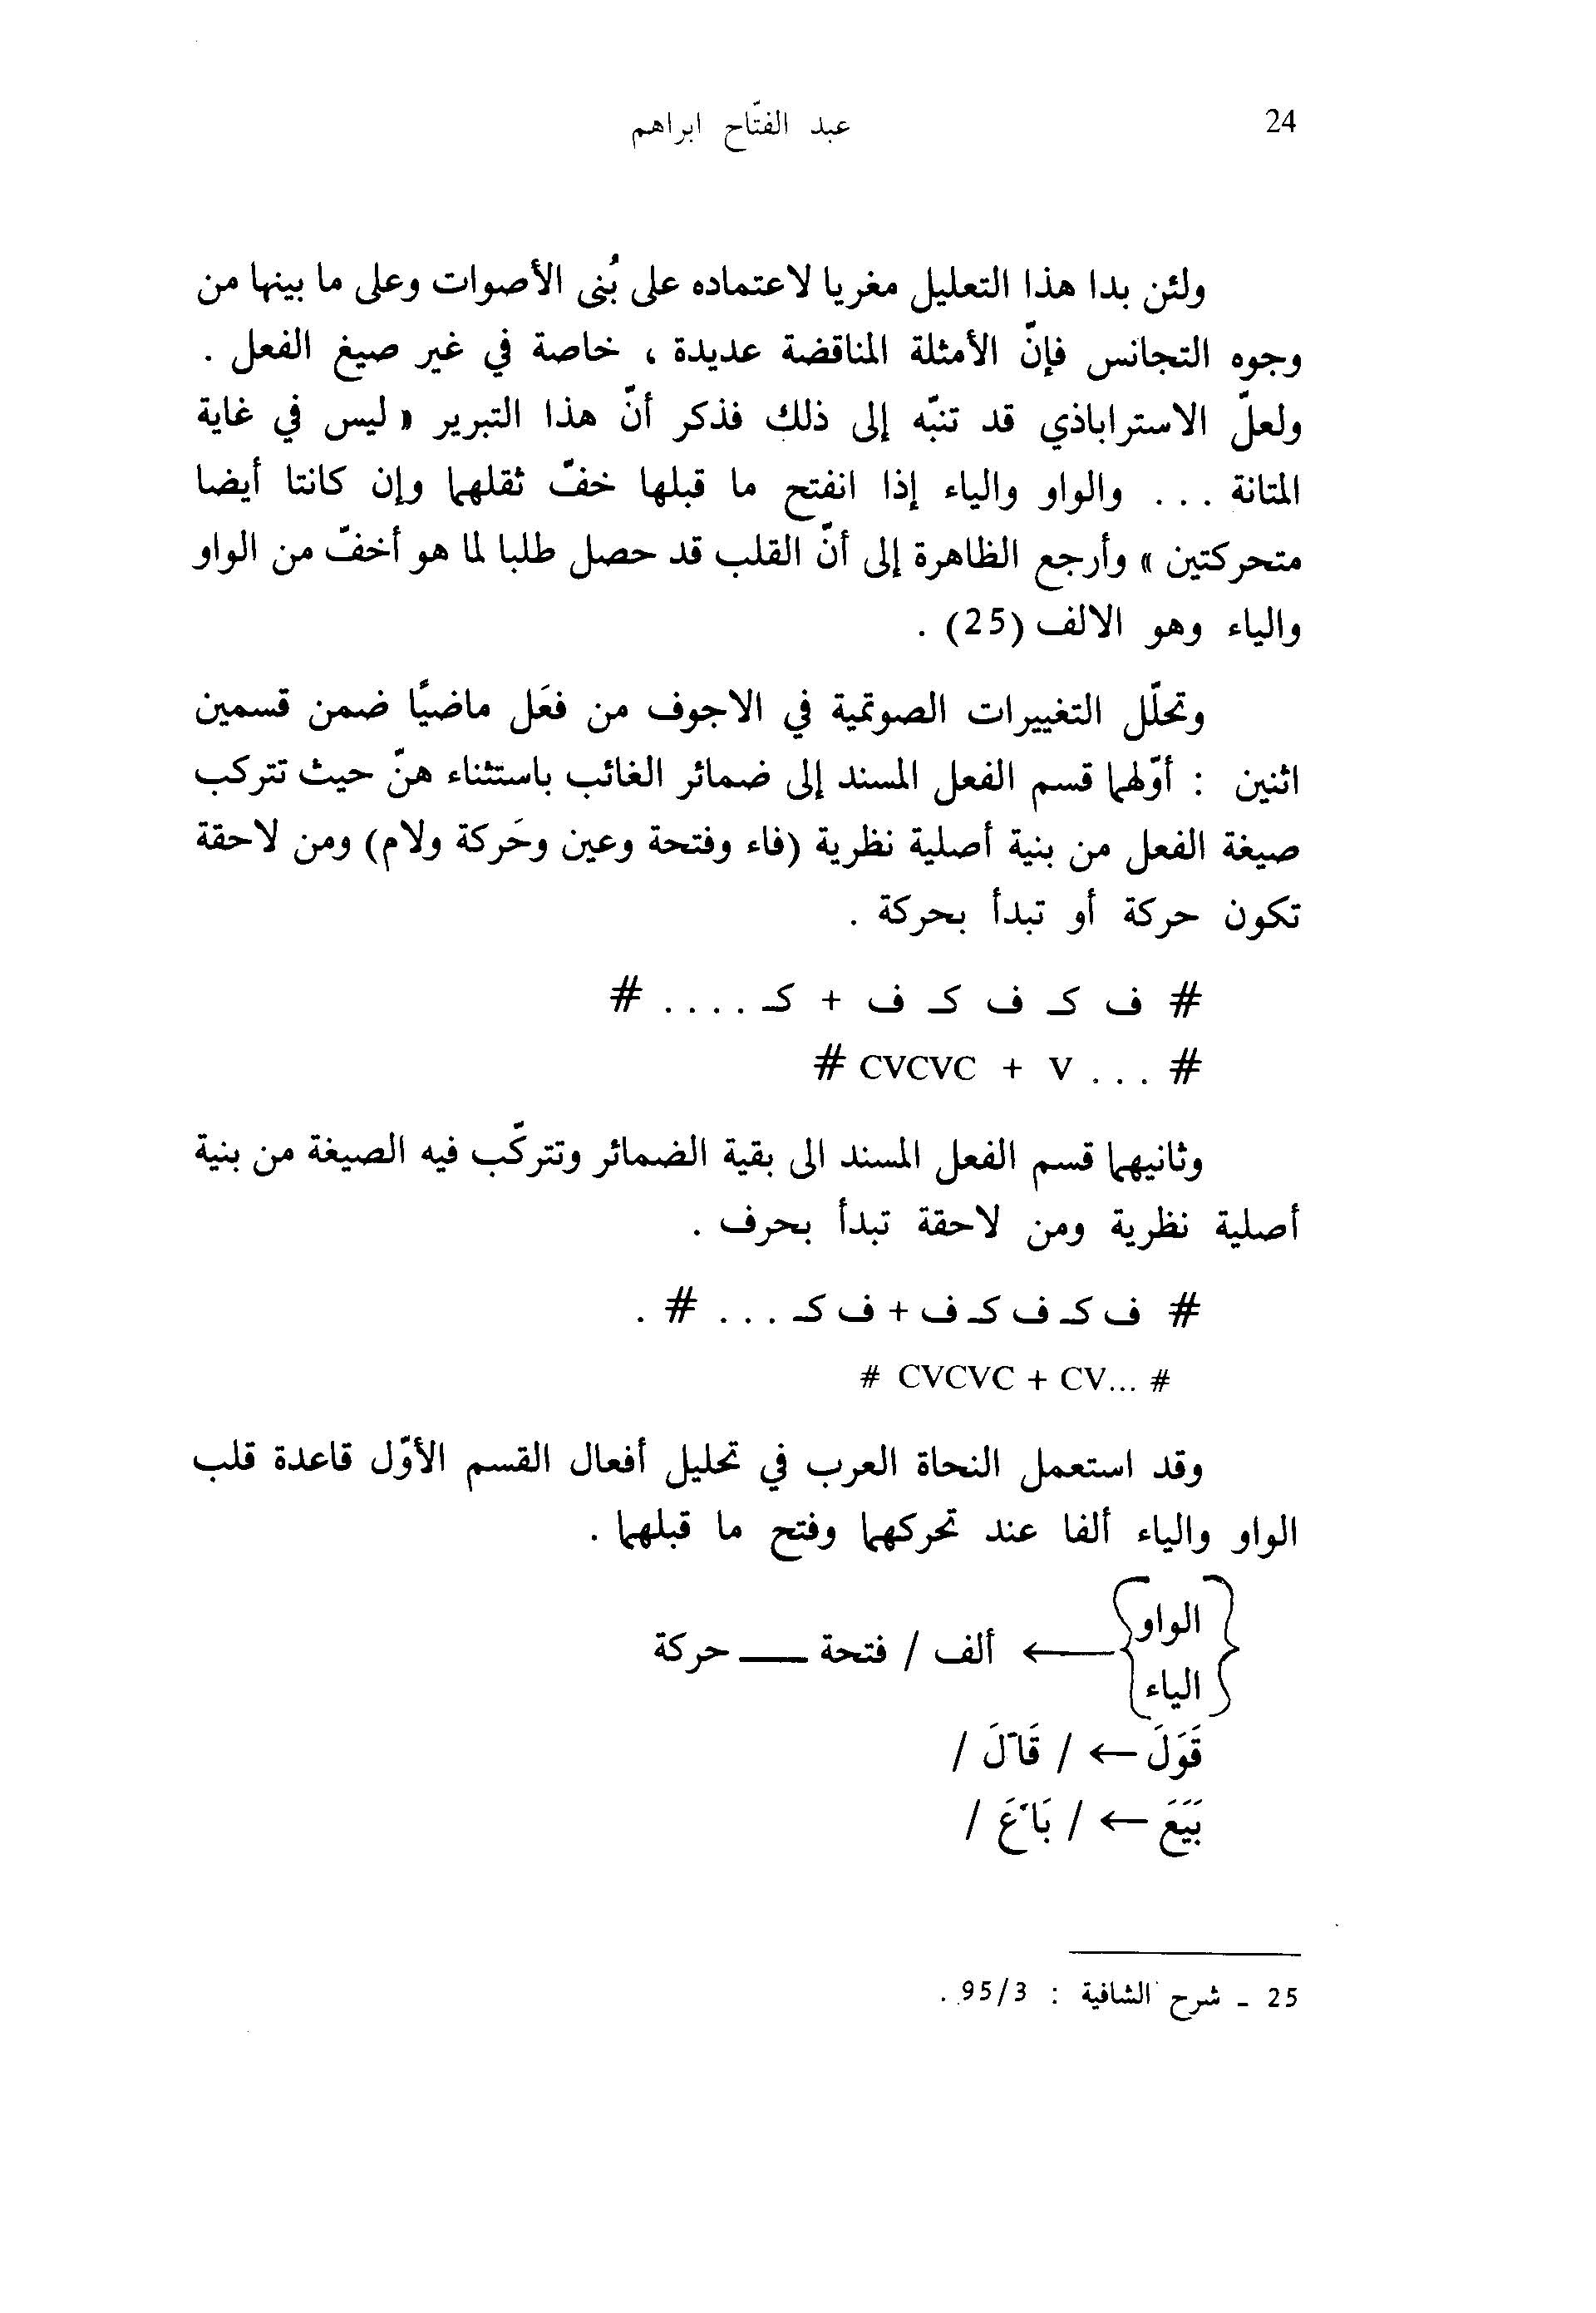 24
عبد الفتّاح ابراهم
ولئن بدا هذا التعليل مغريا لاعتماده على بُنى الأصوات وعلى ما بينها من
وجوه التجانس فإنّ الأمثلة المناقضة عديدة ، خاصة في غير صيغ الفعل .
ولعلّ الاستراباذي قد تنبّه إلى ذلك فذكر أنّ هذا التبرير « ليس في غاية
المتانة . . . والواو والياء إذا انفتح ما قبلها خفّ ثقلهما وإن كانتا أيضا
متحركتين » وأرجع الظاهرة إلى أنّ القلب قد حصل طلبا لما هو أخفّ من الواو
والياء وهو الالف (25) .
وتحلّل التغييرات الصوتمية في الاجوف من فعَل ماضيًا ضمن قسمين
اثنين : أوّلهما قسم الفعل المسند إلى ضمائر الغائب باستثناء هنّ حيث تتركب
صيغة الفعل من بنية أصلية نظرية (فاء وفتحة وعين وحَركة ولام) ومن لاحقة
تكون حركة أو تبدأ بحركة .
# ف كـ ف كـ ف + كـ . . . . #
# CVCVC + V . . . #
وثانيهما قسم الفعل المسند الى بقية الضمائر وتتركّب فيه الصيغة من بنية
أصلية نظرية ومن لاحقة تبدأ بحرف .
# ف كـ ف كـ ف + ف كـ . . . # .
# CVCVC + CV... #
وقد استعمل النحاة العرب في تحليل أفعال القسم الأوّل قاعدة قلب
الواو والياء ألفا عند تحركهما وفتح ما قبلهما .
{ الواو
الياء } ← ألف / فتحة ___ حركة
قَوَلَ ← / قَاَلَ /
بَيَعَ ← / بَاَعَ /
25 ـ شرح الشافية : 95/3 .